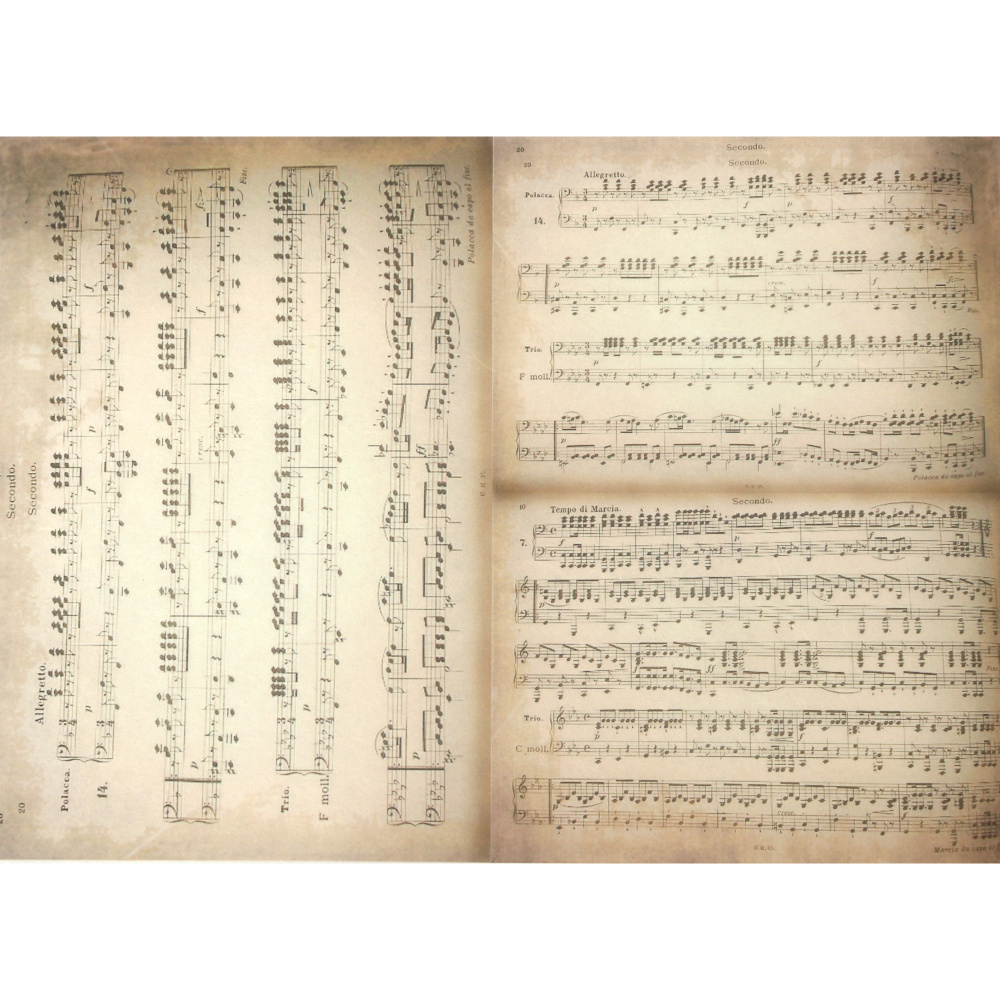 Secondo.
20
Secondo.
Allegretto.
Polacca.
14.
p
f
p
f
cresc.
f
Fine.
Trio.
F moll.
f
p
ff
Polacca da capo al fine.
20
Secondo.
20
Secondo.
Allegretto.
Polacca.
14.
p
f
p
f
p
cresc.
f
Fine.
Trio.
F moll.
f
p
ff
Polacca da capo al fine.
10
Secondo.
Tempo di Marcia.
7.
f
p
f
p
f
ff
Trio.
C moll.
p
p
cresc.
Marcia da capo al